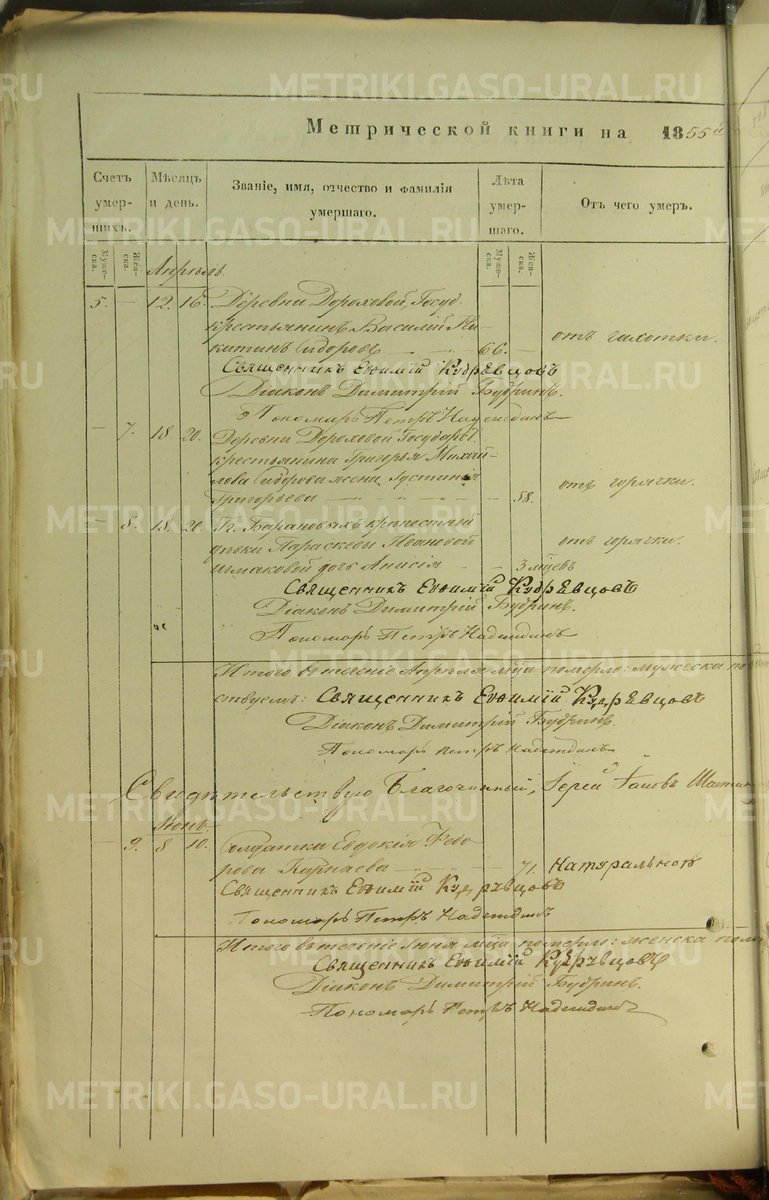 METRIKI.GASO-URAL.RU
Метрической книги на 1855й
Счетъ умер-шихъ.
Мѣсяцъ и день.
Званіе, имя, отчество и фамилія умершаго.
Лѣта умер-шаго.
Отъ чего умеръ.
Муже-ска.
Жен-ска.
Муже-ска.
Жен-ска.
Апрѣль
5. — 12. 16. Деревни Дороховой, Госуд.
крестьянинъ Василій Ни-
китинъ Сидоровъ 66. — отъ чахотки.
Священникъ Евѳимій Кудрявцовъ
Діаконъ Димитрій Бубринъ.
Пономарь Петръ Надеждинъ
— 7. 18. 20. Деревни Дороховой Государ.
крестьянина Григорья Михай-
лова Сидорова жена Іустинія
Григорьева — 58. отъ горячки.
— 8. 18. 20. Г. Барановыхъ крѣпостной
дѣвки Параскевы Ивановой
дочь Анисія — 3 мцевъ отъ горячки.
Священникъ Евѳимій Кудрявцовъ
Діаконъ Димитрій Бубринъ.
Пономарь Петръ Надеждинъ
Итого въ теченіе Апрѣля мца померло: мужеска по
Священникъ Евѳимій Кудрявцовъ
Діаконъ Димитрій Бубринъ.
Пономарь Петръ Надеждинъ
Свидѣтельствую Благочинный, Іерей
Іюнь.
— 9. 8 10. Солдатка Евдокія Ѳедо-
рова — 71. Натурально
Священникъ Евѳимій Кудрявцовъ
Пономарь Петръ Надеждинъ
Итого въ теченіе Іюня мца померло: женска пола
Священникъ Евѳимій Кудрявцовъ
Діаконъ Димитрій Бубринъ.
Пономарь Петръ Надеждинъ